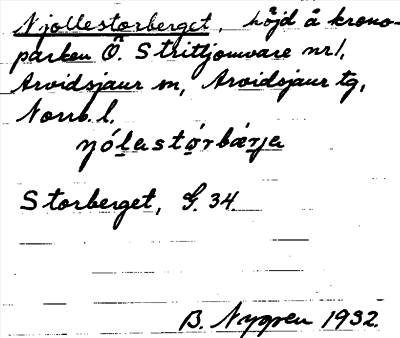 Njollestorberget, höjd å krono-
parken Ö. Strittjomvare nr 1,
Arvidsjaur sn, Arvidsjaur tg,
Norrb. l.
ŋólastórbærja
Storberget, G. 34
B. Nygren 1932.